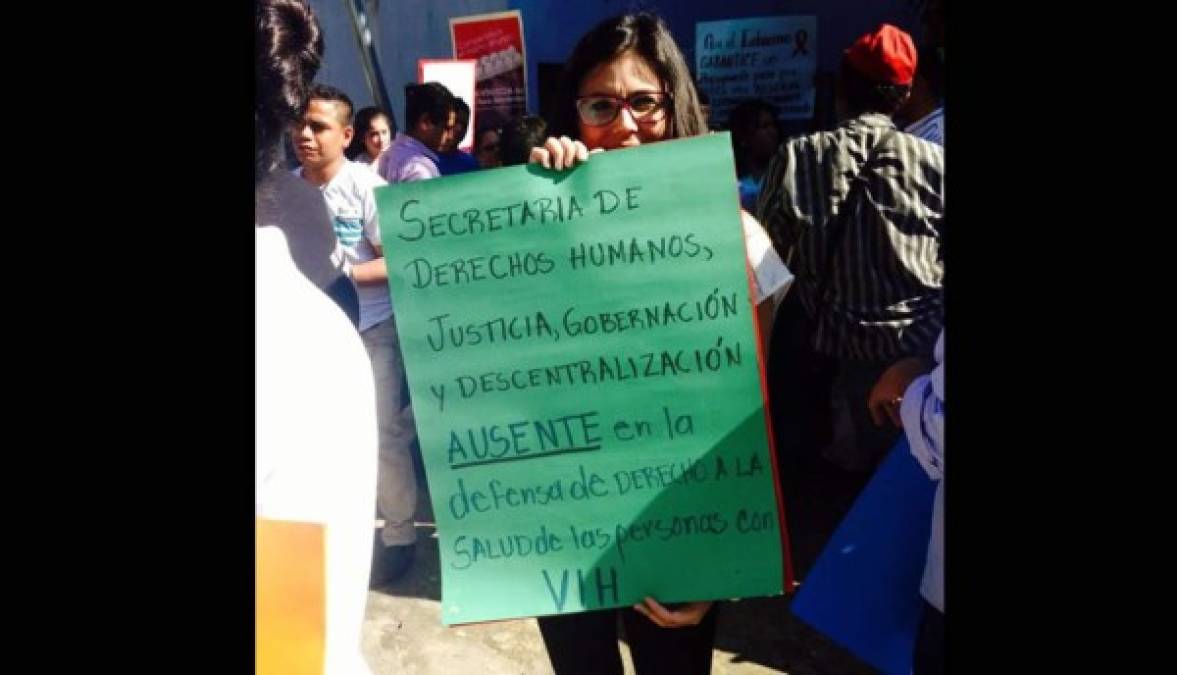 SECRETARIA DE
DERECHOS HUMANOS,
JUSTICIA, GOBERNACIÓN
y DESCENTRALIZACIÓN
AUSENTE en la
defensa de DERECHO A LA
SALUD de las personas con
VIH
Por el Gobierno
GARANTICE un